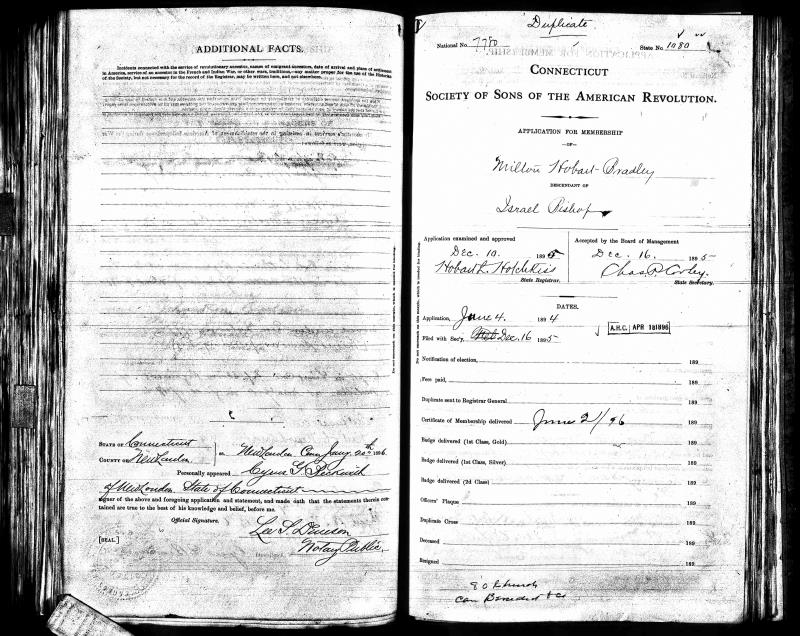 ADDITIONAL FACTS.
Incidents connected with the service of revolutionary ancestor, names of emigrant ancestors, date of arrival and place of settlement
in America, service of an ancestor in the French and Indian War, or other wars, traditions,—any matter proper for the use of the Historian
of the Society, but not necessary for the record of the Registrar, may be written here, and not elsewhere.
STATE OF Connecticut
COUNTY OF New London
on New London Conn Jany. 20th 1896
Personally appeared Cyrus G. Beckwith
of New London, State of Connecticut
signer of the above and foregoing application and statement, and made oath that the statements therein con-
tained are true to the best of his knowledge and belief, before me.
Official Signature.
Lee S. Denison
[SEAL.]
Notary Public.
Duplicate
National No. 7780
State No. 1080
CONNECTICUT
SOCIETY OF SONS OF THE AMERICAN REVOLUTION.
APPLICATION FOR MEMBERSHIP
—OF—
Milton Hobart Bradley
DESCENDANT OF
Israel Bishop
Application examined and approved
Dec. 10. 1895
Hobart L. Hotchkiss
State Registrar.
Accepted by the Board of Management
Dec. 16. 1895
Chas. P. Cooley.
State Secretary.
DATES.
Application, June 4. 1894
Filed with Sec'y. Dec. 16 1895
A.H.C. APR 18 1896
Notification of election, 189
Fees paid, 189
Duplicate sent to Registrar General 189
Certificate of Membership delivered June 2/96 189
Badge delivered (1st Class, Gold) 189
Badge delivered (1st Class, Silver) 189
Badge delivered (2d Class) 189
Officers' Plaque 189
Duplicate Cross 189
Deceased 189
Resigned 189
90 Church
Care Benedict & Co